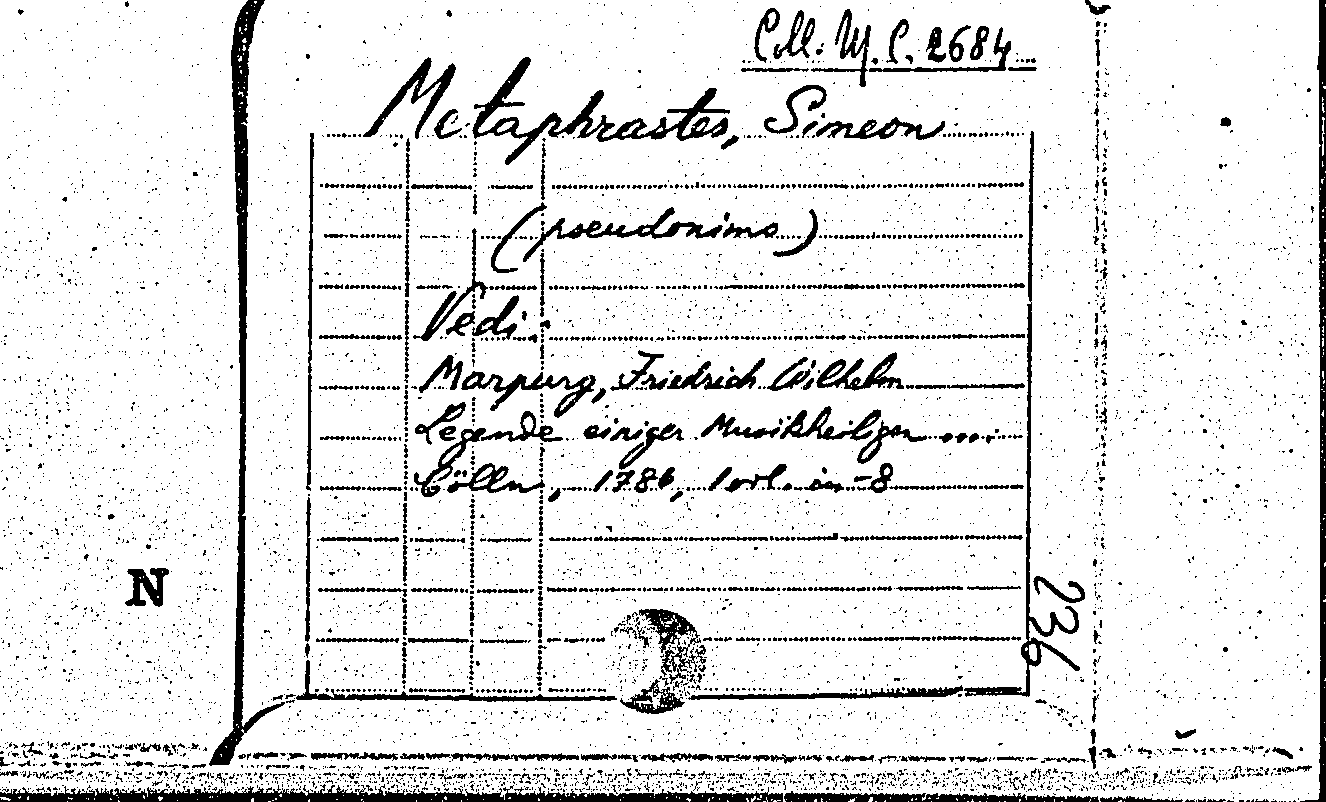 Coll. M. C. 2684
Metaphrastes, Simeon
(pseudonimo)
Vedi:
Marpurg, Friedrich Wilhelm
Legende einiger Musikheiligen ....
Cölln, 1786, 1 vol. in-8
N
236